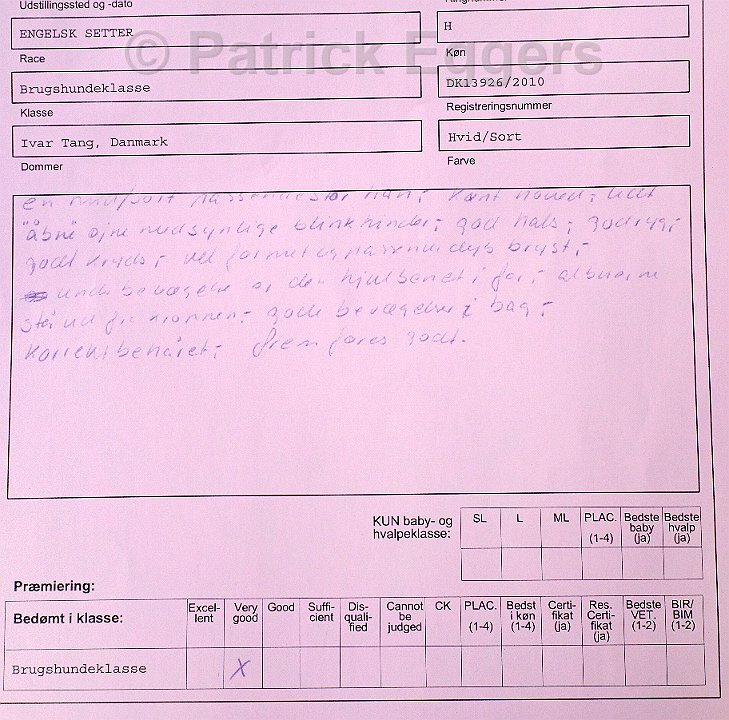 Udstillingssted og -dato
ENGELSK SETTER
H
Race
Køn
© Patrick Eggers
Brugshundeklasse
DK13926/2010
Klasse
Registreringsnummer
Ivar Tang, Danmark
Hvid/Sort
Dommer
Farve
en hvid/sort passende stor han,- kønt hoved,- lidt
"åbne" øjne med synlige blinkhinder,- god hals,- god ryg,-
godt kryds,- vel formet og passende dyb bryst,-
under bevægelse er den hjulbenet i for,- albuerne
står ud fra kroppen,- gode bevægelser i bag,-
Korrekt behåret,- fremføres godt.
KUN baby- og hvalpeklasse:
SL L ML PLAC. (1-4) Bedste baby (ja) Bedste hvalp (ja)
Præmiering:
Bedømt i klasse: Excel-lent Very good Good Suffi-cient Dis-quali-fied Cannot be judged CK PLAC. (1-4) Bedst i køn (1-4) Certi-fikat (ja) Res. Certi-fikat (ja) Bedste VET. (1-2) BIR/BIM (1-2)
Brugshundeklasse X